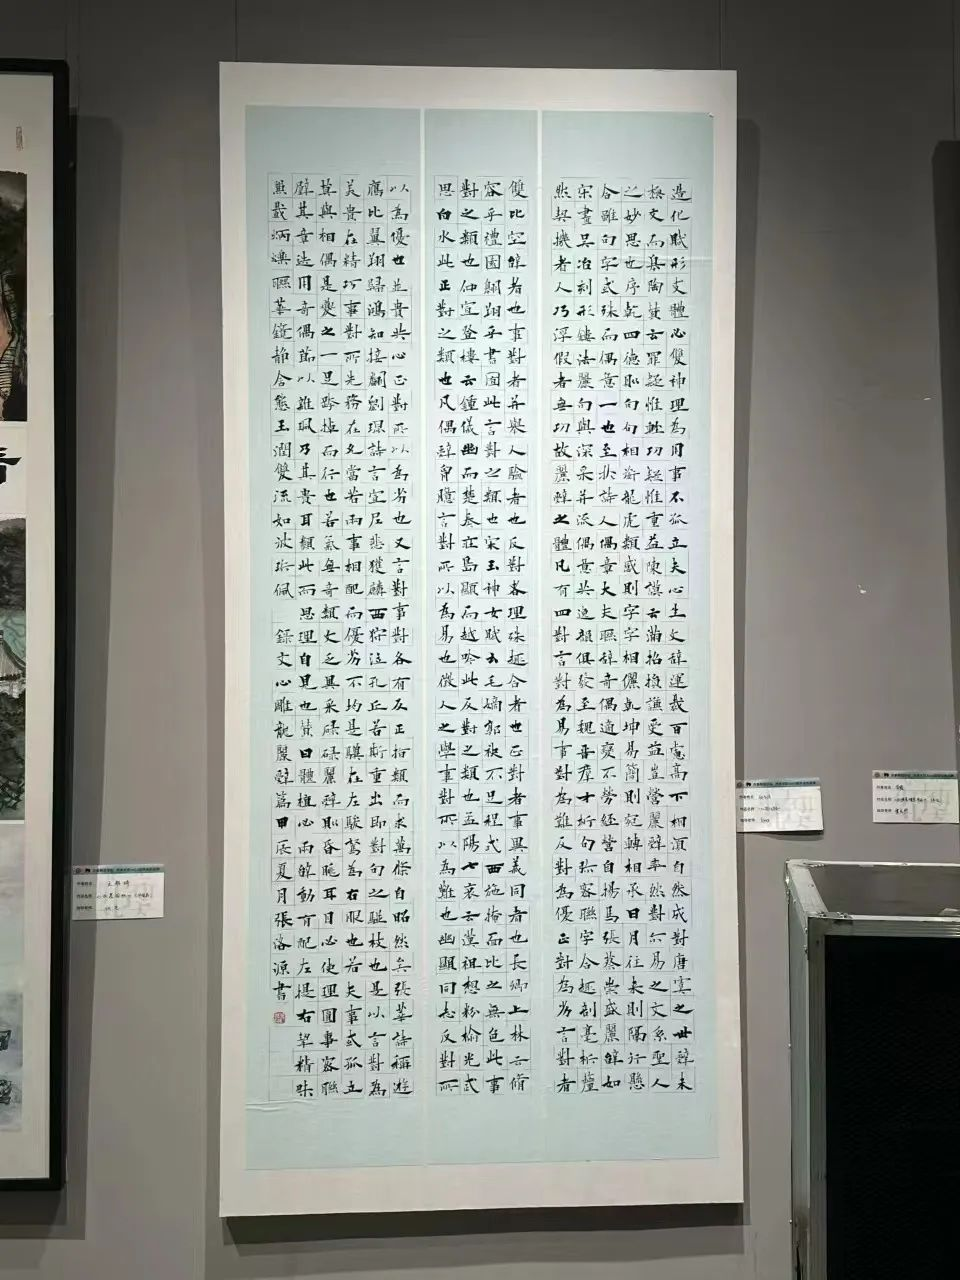 造化賦形支體必雙神理為用事不孤立夫心生文辭運裁百慮高下相須自然成對唐虞之世辭未
極文而臯陶贊云罪疑惟輕功疑惟重益陳謨云滿招損謙受益豈營麗辭率然對尒易之文系聖人
之妙思也序乾四德則句句相銜龍虎類感則字字相儷乾坤易簡則宛轉相承日月往來則隔行懸
合雖句字或殊而偶意一也至於詩人偶章大夫聯辭奇偶適變不勞經營自揚馬張蔡崇盛麗辭如
宋畫吳冶刻形鏤法麗句與深采並流偶意共逸韻俱發至魏晉群才析句弥密聯字合趣剖毫析釐
然契機者人巧浮假者無功故麗辭之體凡有四對言對為易事對為難反句對為優正對為劣言對者
雙比空辭者也事對者并舉人驗者也反對者理殊趣合者也正對者事異義同者也長卿上林云脩
容乎禮園翱翔乎書圃此言對之類也宋玉神女賦云毛嬙鄣袂不足程式西施掩面比之無色此事
對之類也仲宣登樓云鍾儀幽而楚奏莊舄顯而越吟此反對之類也孟陽七哀云漢祖想枌榆光武
思白水此正對之類也凡偶辭胷臆言對所以為易也徵人之學事對所以為難也幽顯同志反對所
以為優也並貴共心正對所以為劣也又言對事對各有反正指類而求萬條自昭然矣張華詩稱遊
鴈比翼翔歸鴻知接翮劉琨詩言宣尼悲獲麟西狩泣孔丘若斯重出即對句之駢枝也是以言對為
美貴在精巧事對所先務在允當若兩事相配而優劣不均是驥在左驂駑為右服也若夫事或孤立
莫與相偶是夔之一足趻踔而行也若氣無奇類文乏異采碌碌麗辭則昏睡耳目必使理圓事密聯
璧其章迭用奇偶節以雜珮乃其貴耳類此而思理自見也贊曰體植必兩辭動有配左提右挈精味
兼載炳爍聯華鏡靜含態玉潤雙流如波珩佩 錄文心雕龍麗辭篇甲辰夏月張落源書